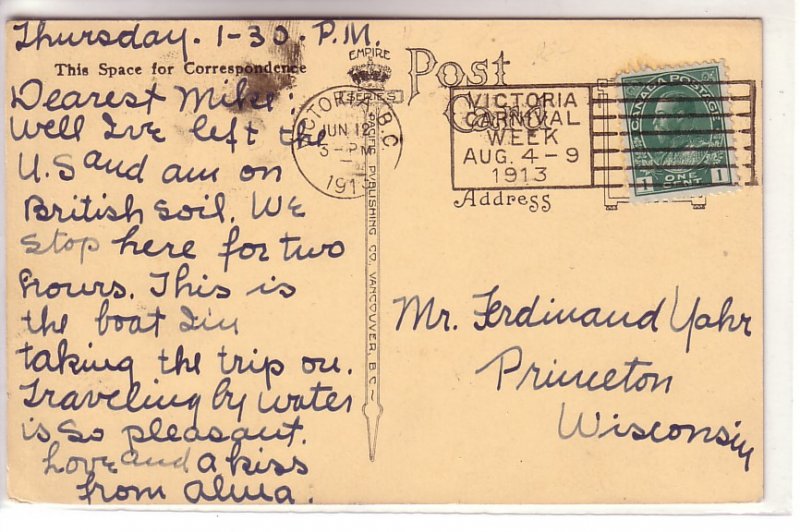 Thursday. 1-30. P.M.
This Space for Correspondence
Dearest Mike:
Well I've left the
U.S and am on
British soil. We
stop here for two
hours. This is
the boat I'm
taking the trip on.
Traveling by water
is so pleasant.
Love and a kiss
from Alma.
EMPIRE
SERIES
PUBLISHING CO. VANCOUVER, B.C.
Post
Card
VICTORIA, B.C
JUN 12
3-PM
1913
VICTORIA
CARNIVAL
WEEK
AUG. 4-9
1913
CANADA POSTAGE
1 ONE CENT 1
Address
Mr. Ferdinand Yahr
Princeton
Wisconsin